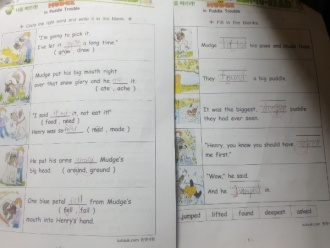 in Puddle Trouble
Circle the right word and write it in the blank.
"I'm going to pick it.
I've let it grow a long time."
( grow , draw )
Mudge put his big mouth right
over that snow glory and he ate it
( ate , ache )
"I said it, not eat it!"
Henry was so mad
( mad , made )
He put his arms around Mudge's
big head.
( around, ground )
One blue petal fell from Mudge's
( fell , fail )
mouth into Henry's hand.
in Puddle Trouble
Fill in the blanks.
Mudge lifted his paws and shook them.
They found a big puddle.
It was the biggest, puddle
they had ever seen.
"Henry, you should have
me first."
"Wow," he said.
And he jumped in.
jumped lifted found deepest asked